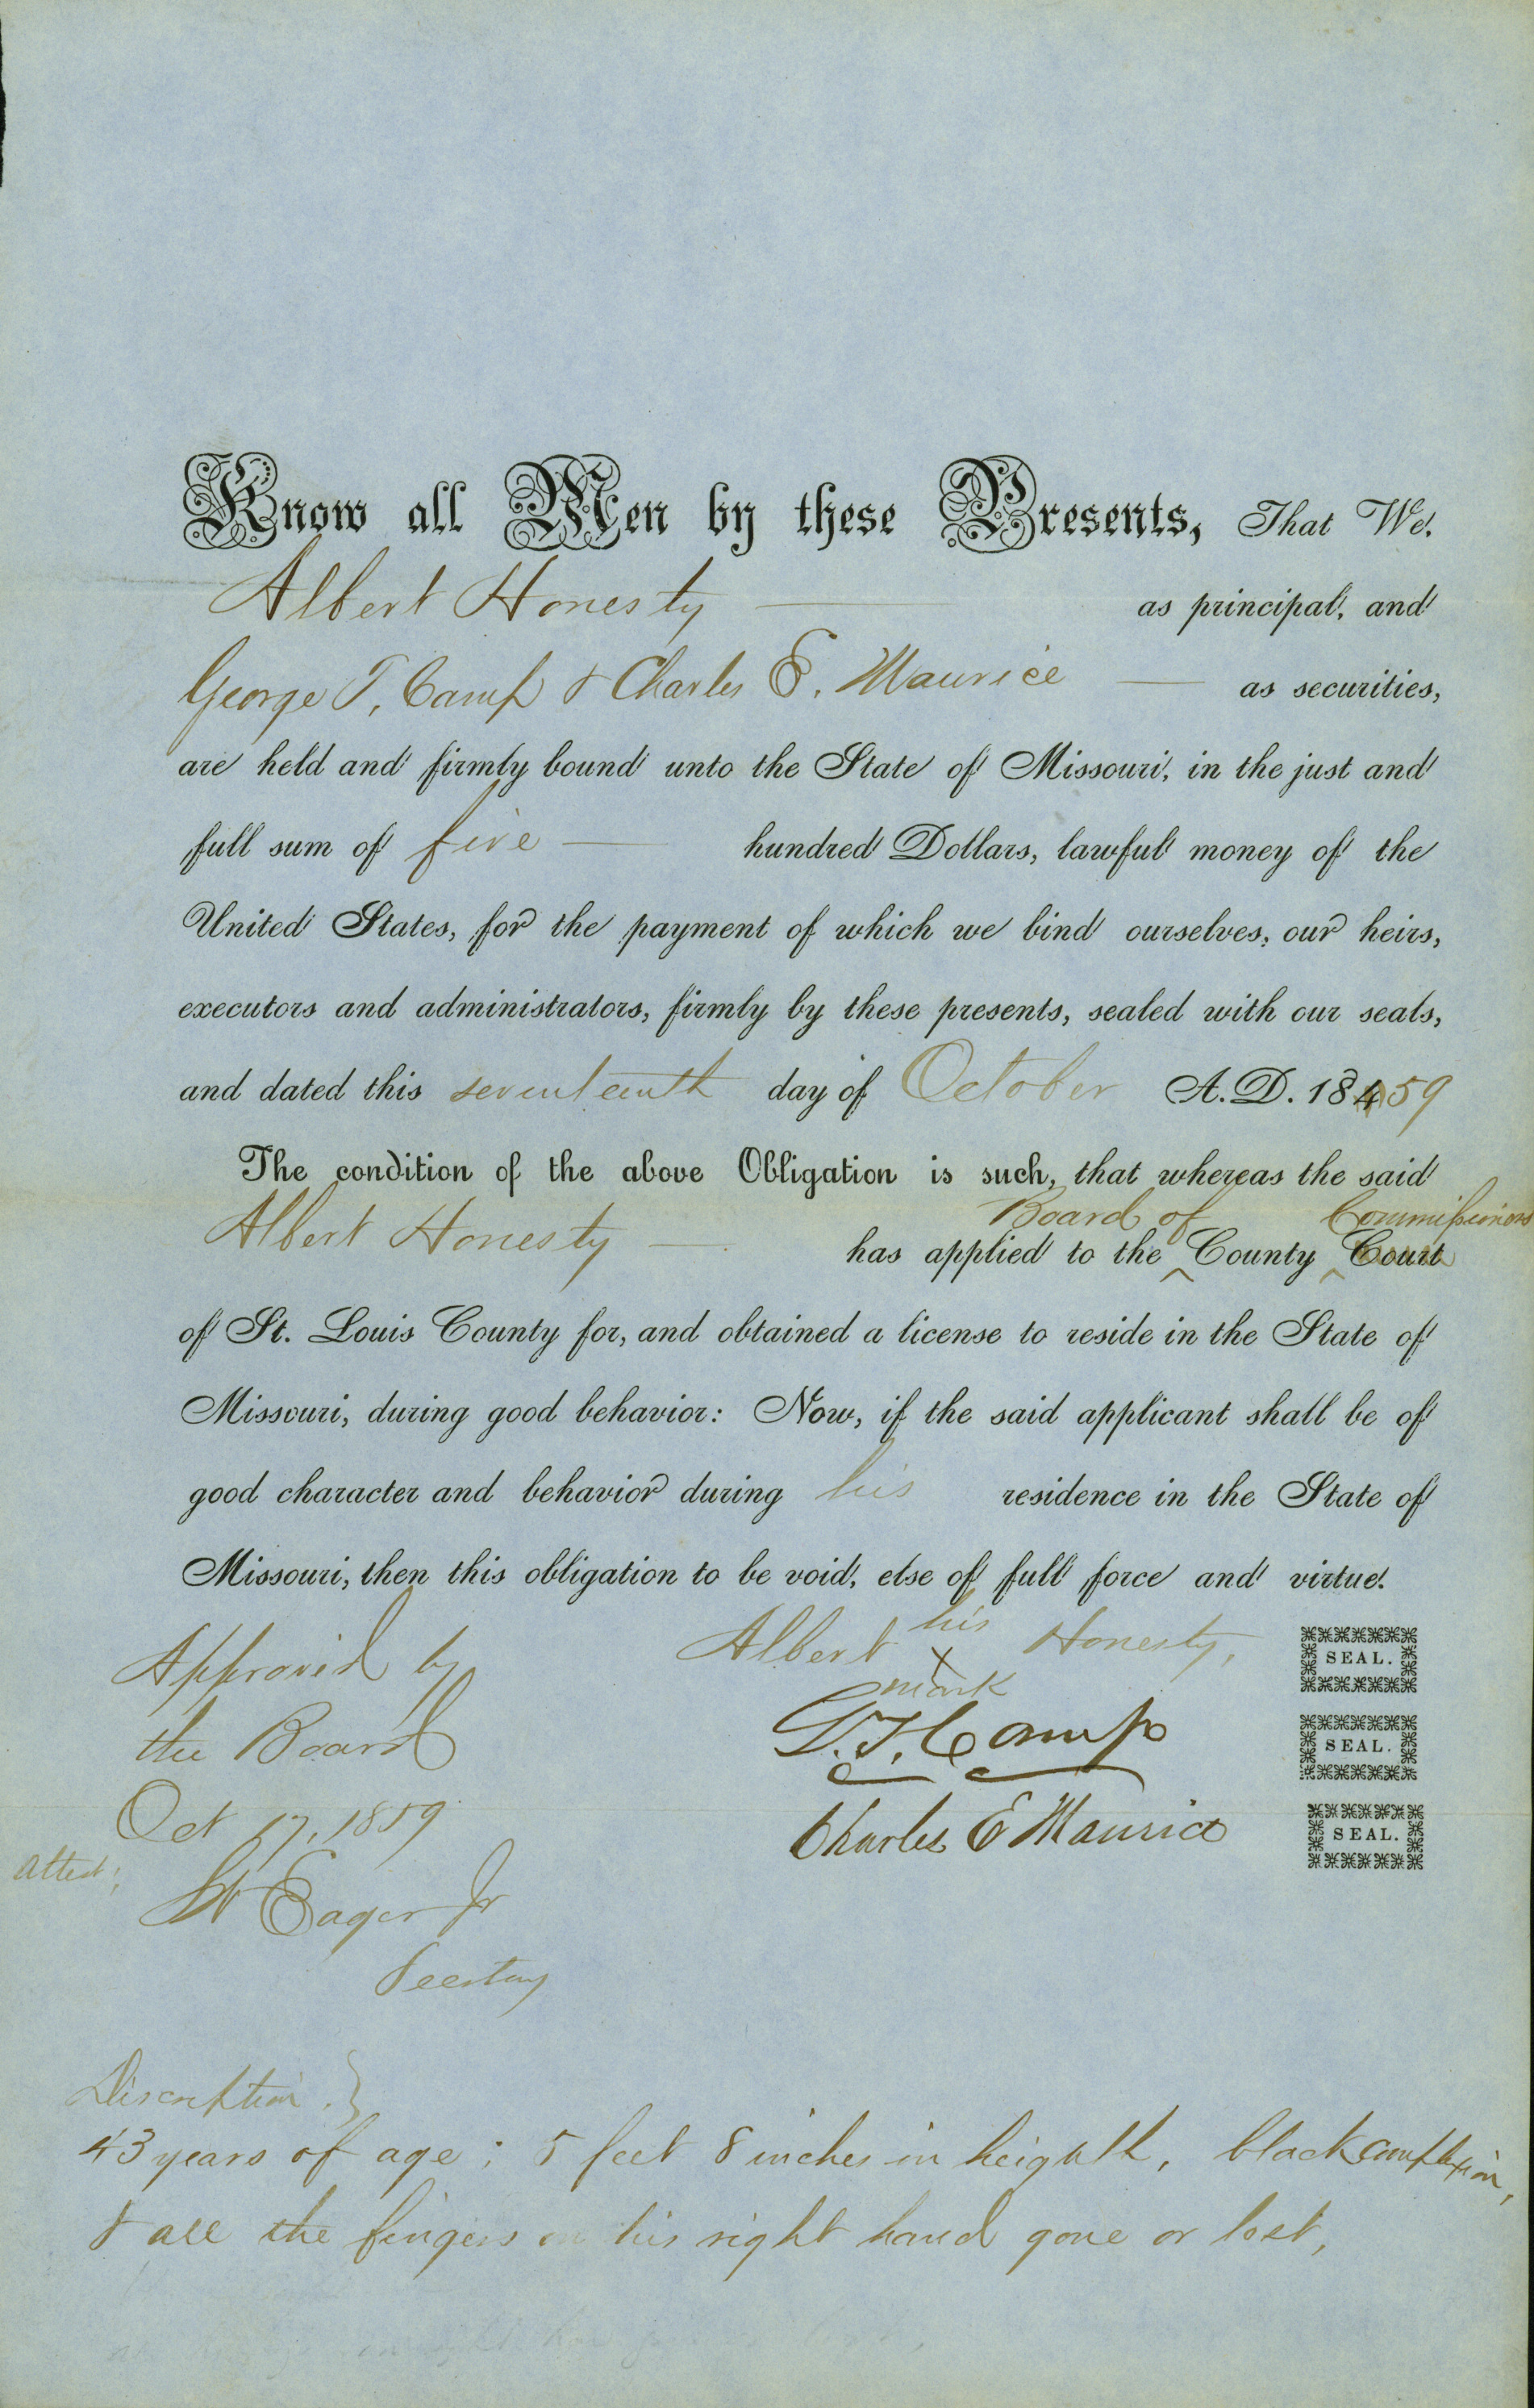 Know all Men by these Presents, That We,
Albert Honesty — as principal, and
George T. Camp & Charles E. Maurice — as securities,
are held and firmly bound unto the State of Missouri, in the just and
full sum of five — hundred Dollars, lawful money of the
United States, for the payment of which we bind ourselves, our heirs,
executors and administrators, firmly by these presents, sealed with our seals,
and dated this seventeenth day of October A. D. 18459
The condition of the above Obligation is such, that whereas the said
Board of Commissioners
Albert Honesty — has applied to the ^ County ^ Court
of St. Louis County for, and obtained a license to reside in the State of
Missouri, during good behavior: Now, if the said applicant shall be of
good character and behavior during his residence in the State of
Missouri, then this obligation to be void, else of full force and virtue.
his
Albert X Honesty, SEAL.
mark
G. T. Camp SEAL.
Charles E Maurice SEAL.
Approved by
the Board
Oct 17, 1859
Attest;
Wm Eager Jr
Secretary
Discription.}
43 years of age; 5 feet 8 inches in heighth, black complexion,
& all the fingers on his right hand gone or lost,